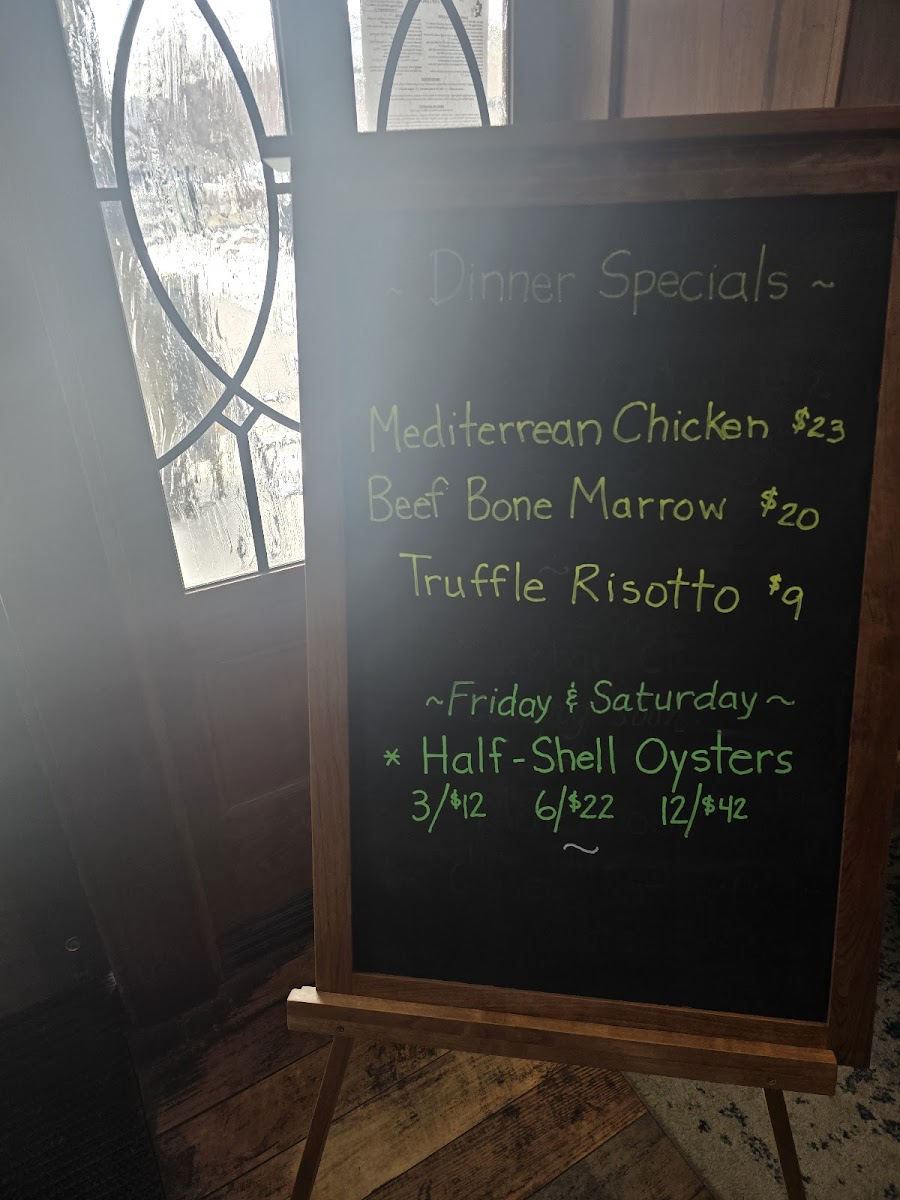 ~ Dinner Specials ~
Mediterrean Chicken $23
Beef Bone Marrow $20
Truffle Risotto $9
~Friday & Saturday~
* Half-Shell Oysters
3/$12 6/$22 12/$42
~